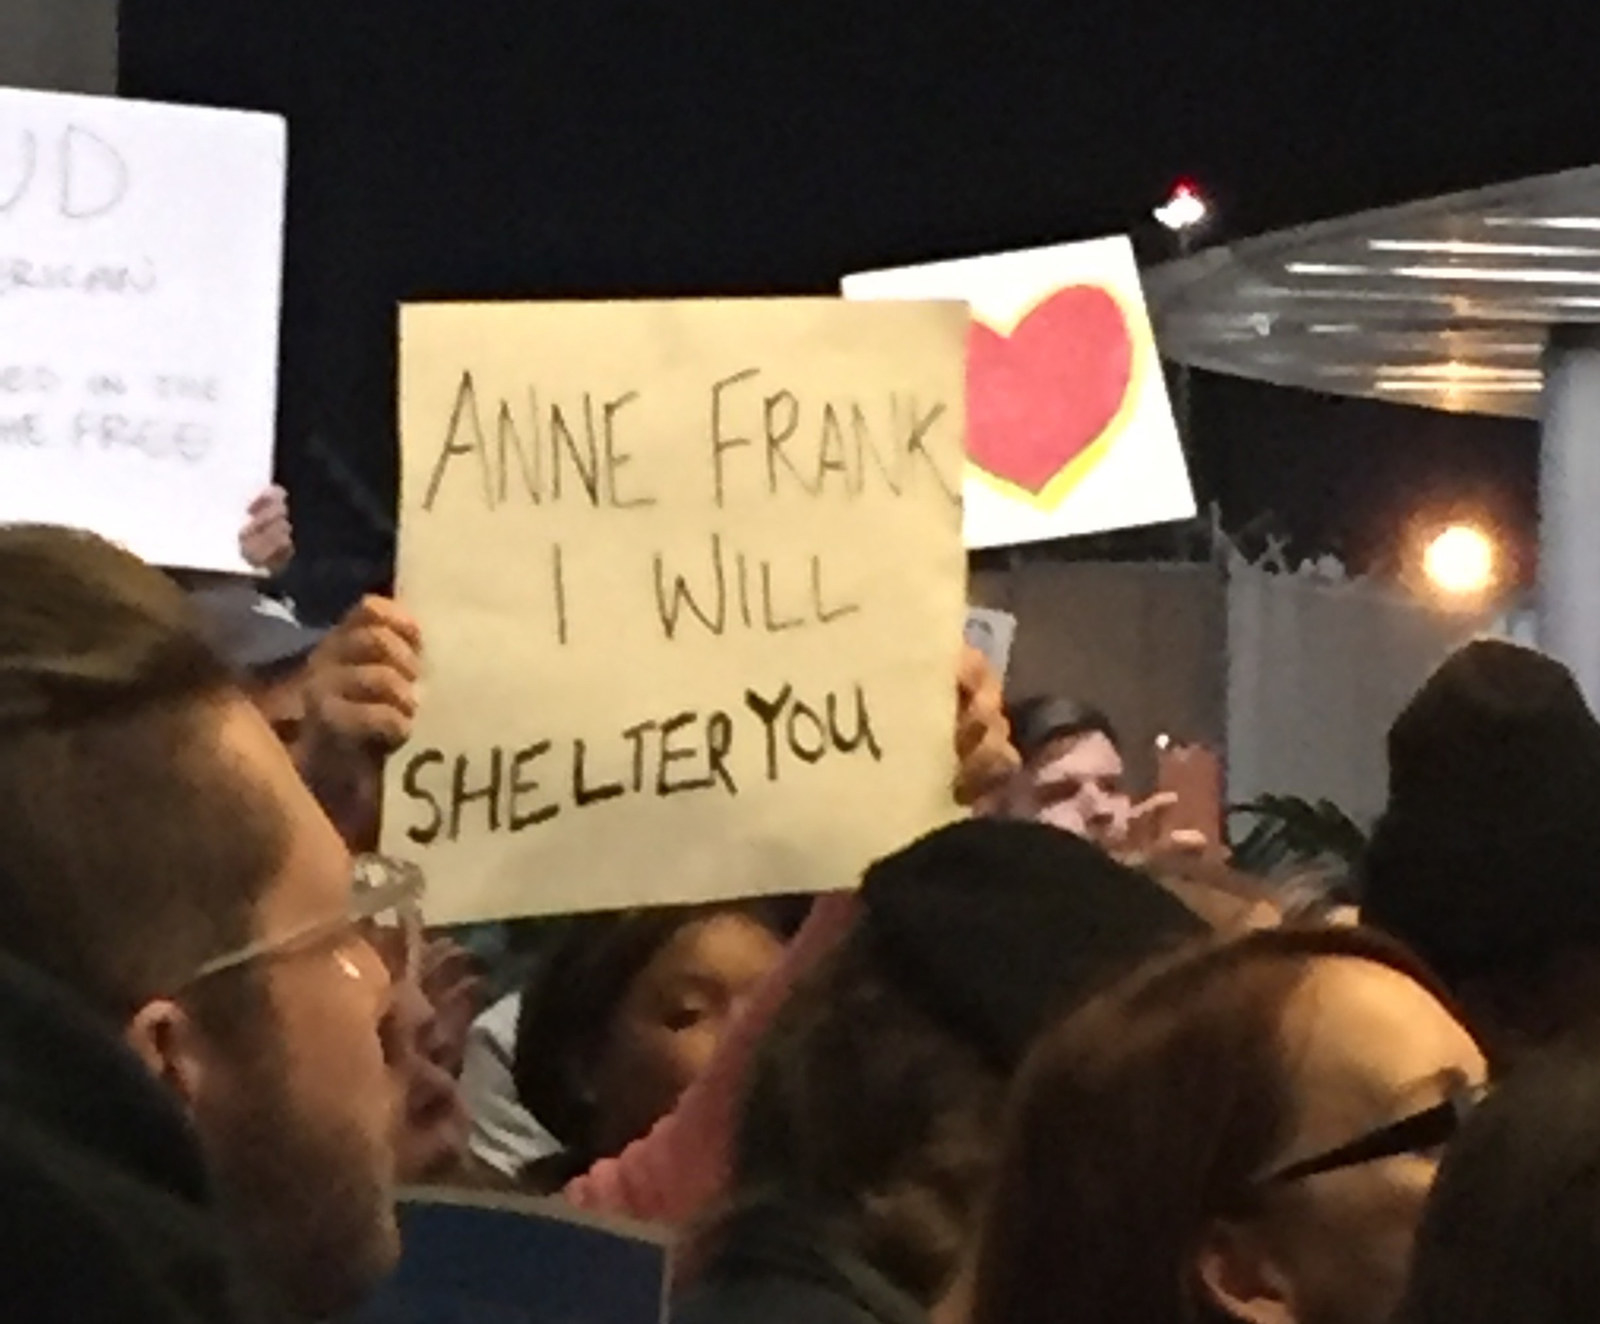 UD
ERICAN
ED IN THE
HE FREE
ANNE FRANK
I WILL
SHELTER YOU